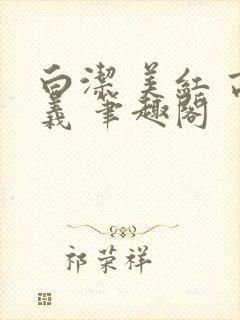 白潔 美紅 高
義 筆趣閣
祁荣祥